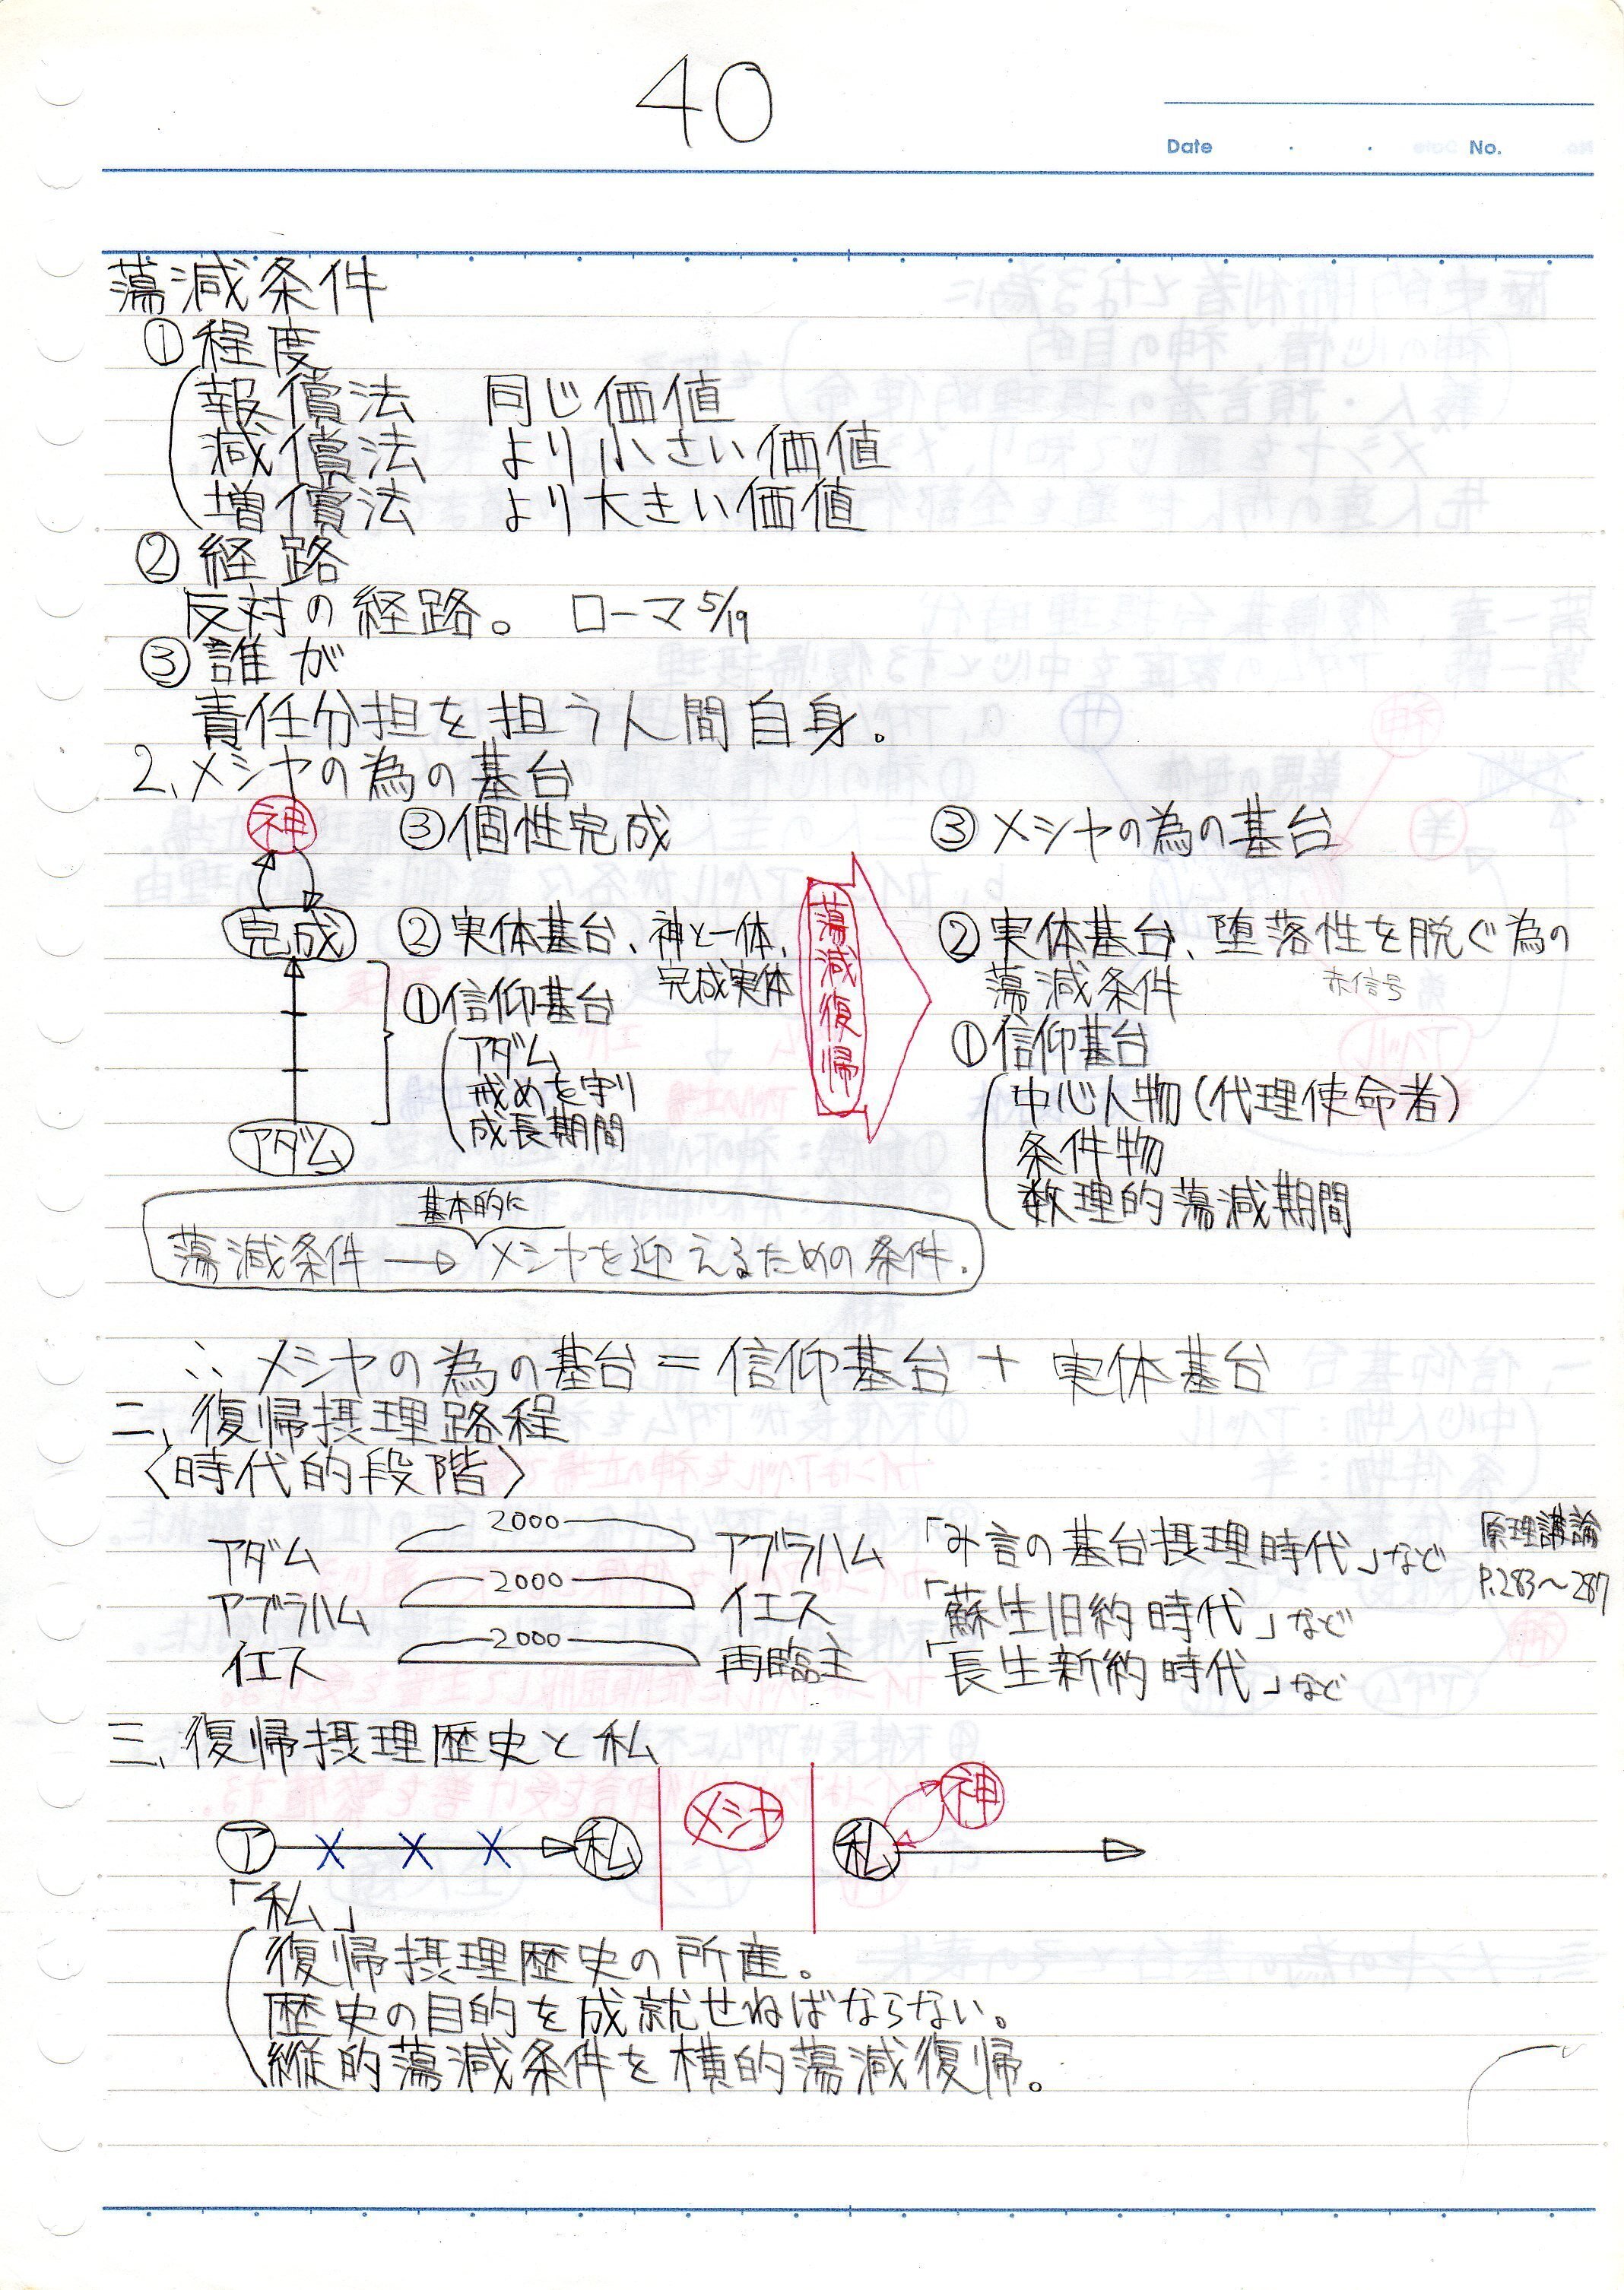 40
Date . . No.
蕩減条件
①程度
報償法 同じ価値
減償法 より小さい価値
増償法 より大きい価値
②経路
反対の経路。 ローマ5/19
③誰が
責任分担を担う人間自身。
2、メシヤの為の基台
神
③個性完成
完成
②実体基台、神と一体、
完成実体
①信仰基台
アダム
戒めを守り
成長期間
アダム
蕩減復帰
③メシヤの為の基台
②実体基台、堕落性を脱ぐ為の
蕩減条件 赤信号
①信仰基台
中心人物(代理使命者)
条件物
数理的蕩減期間
基本的に
蕩減条件→メシヤを迎えるための条件.
∴メシヤの為の基台=信仰基台+実体基台
二、復帰摂理路程
〈時代的段階〉
アダム 2000 アブラハム 「み言の基台摂理時代」など
アブラハム 2000 イエス 「蘇生旧約時代」など
イエス 2000 再臨主 「長生新約時代」など
原理講論
P.283~287
三、復帰摂理歴史と私
ア × × × 私 メシヤ 私 神
「私」
復帰摂理歴史の所産。
歴史の目的を成就せねばならない。
縦的蕩減条件を横的蕩減復帰。